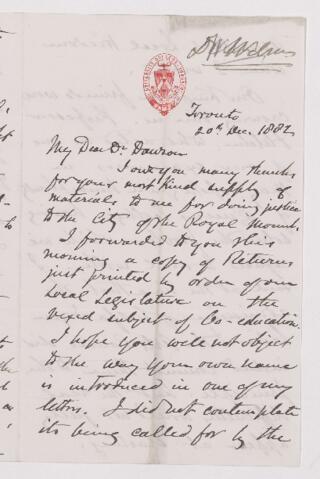 Dr Wilson
Toronto
20th Dec. 1882
My Dear Dr Dawson
I owe you many thanks
for your most kind supply of
materials to me for doing justice
to the City of the Royal Mount.
I forwarded to you this
morning a copy of Returns
just printed by order of our
Local Legislature on the
vexed subject of Co-education.
I hope you will not object
to the way your own name
is introduced in one of my
letters. I did not contemplate
its being called for by the